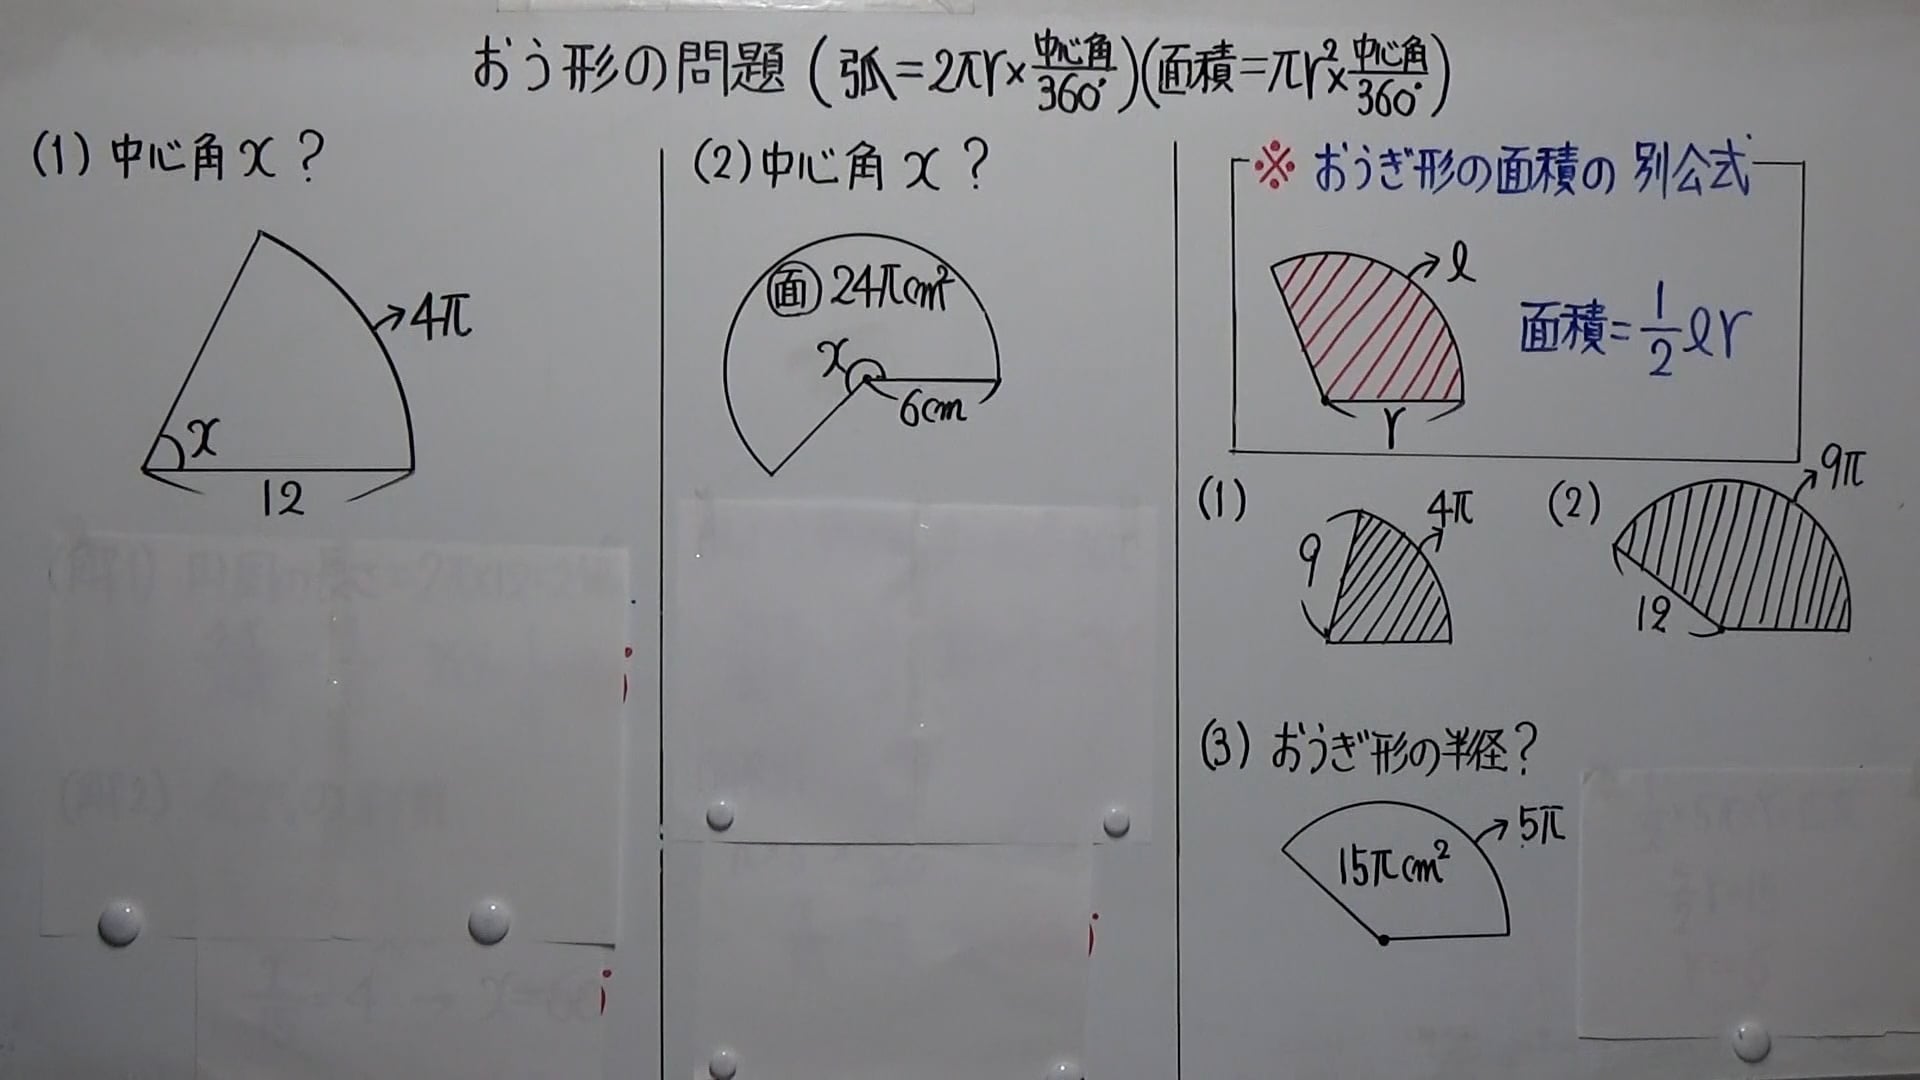 おう形の問題 (弧=2πr×中心角/360°)(面積=πr²×中心角/360°)
(1) 中心角 x ?
4π
x
12
(2) 中心角 x ?
面 24πcm²
x
6cm
※ おうぎ形の面積の 別公式
l
面積=1/2 lr
r
(1)
4π
9
(2)
9π
12
(3) おうぎ形の半径?
5π
15πcm²